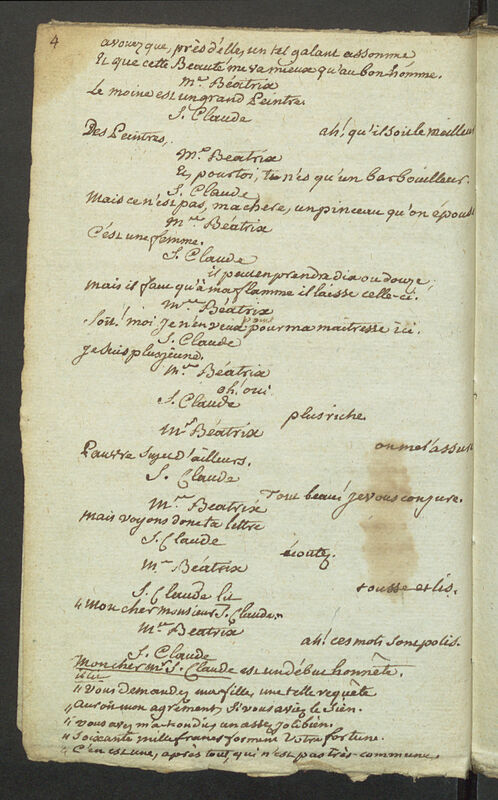 4
avouez que, près d'elle, un tel galant assomme
Et que cette Beauté me va mieux qu'au bon homme.
Me. Béatrix
Le moine est un grand Peintre.
S. Claude
ah! qu'il soit le meilleur
Des Peintres,
Me. Béatrix
Et, pour toi, tu n'es qu'un barbouilleur.
S. Claude
Mais ce n'est pas, ma chere, un pinceau qu'on épouse
Me. Béatrix
C'est une femme.
S. Claude
il peut en prendre dix ou douze,
mais il faut qu'à ma flamme il laisse celle-ci.
Me. Béatrix
Soit! moi je n'en veux point pour ma maitresse ici.
S. Claude
je suis plus jeune.
Me. Béatrix
oh! oui
S. Claude
plus riche
Me. Béatrix
on me l'assure
Pauvre Sujet d'ailleurs.
S. Claude
Tout beau! je vous conjure.
Me. Béatrix
Mais voyons donc ta lettre
S. Claude
écoutez.
Me. Béatrix
tousse et lis.
S. Claude lit
"Mon cher monsieur S. Claude."
Me. Béatrix
ah! ces mots sont polis.
S. Claude
Mon cher Mr. S. Claude est un début honnête.
il lit
"Vous demandez ma fille, une telle requête
"Auroit mon agrément, si vous aviez le sien.
"vous avez m'a-t-on dit un assez joli bien.
"Soixante mille francs forment votre fortune.
"C'en est une, après tout, qui n'est pas très commune,